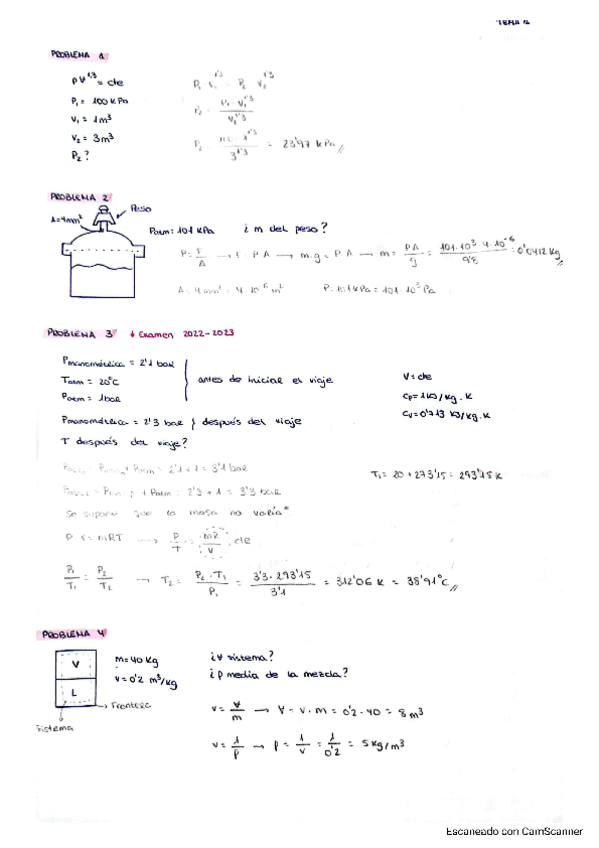 TEMA 1
PROBLEMA 1
PV^1'3 = cte
P₁ = 100 KPa
V₁ = 1m³
V₂ = 3m³
P₂ ?
P₁ V₁^1'3 = P₂ V₂^1'3
P₂ = P₁ · V₁^1'3 / V₂^1'3
P₂ = 100 · 1^1'3 / 3^1'3 = 23'97 KPa //
PROBLEMA 2
A=4mm²
Peso
Patm: 101 KPa
¿ m del peso?
P = F/A → F = P A → m·g = P A → m = PA/g = 101·10³ · 4·10⁻⁶ / 9'8 = 0'0412 Kg //
A = 4mm² = 4·10⁻⁶ m²
P = 101 KPa = 101·10³ Pa
PROBLEMA 3 ↓ Examen 2022-2023
Pmanométrica = 2'1 bar
Tatm = 20°C
Patm = 1bar
antes de iniciar el viaje
V = cte
Cp = 1 KJ/Kg·K
Cv = 0'713 KJ/Kg·K
Pmanométrica = 2'3 bar } después del viaje
T después del viaje?
+ Patm = 2'1 + 1 = 3'1 bar
T₁ = 20 + 273'15 = 293'15 K
+ Patm = 2'3 + 1 = 3'3 bar
Se supone que la masa no varía*
P V = mRT → P/T = mR/V cte
P₁/T₁ = P₂/T₂ → T₂ = P₂·T₁/P₁ = 3'3 · 293'15 / 3'1 = 312'06 K = 38'91°C //
PROBLEMA 4
V
L
Frontera
Sistema
m = 40 Kg
v = 0'2 m³/Kg
¿V sistema?
¿ρ media de la mezcla?
v = V/m → V = v · m = 0'2 · 40 = 8 m³
v = 1/ρ → ρ = 1/v = 1/0'2 = 5 Kg/m³
Escaneado con CamScanner